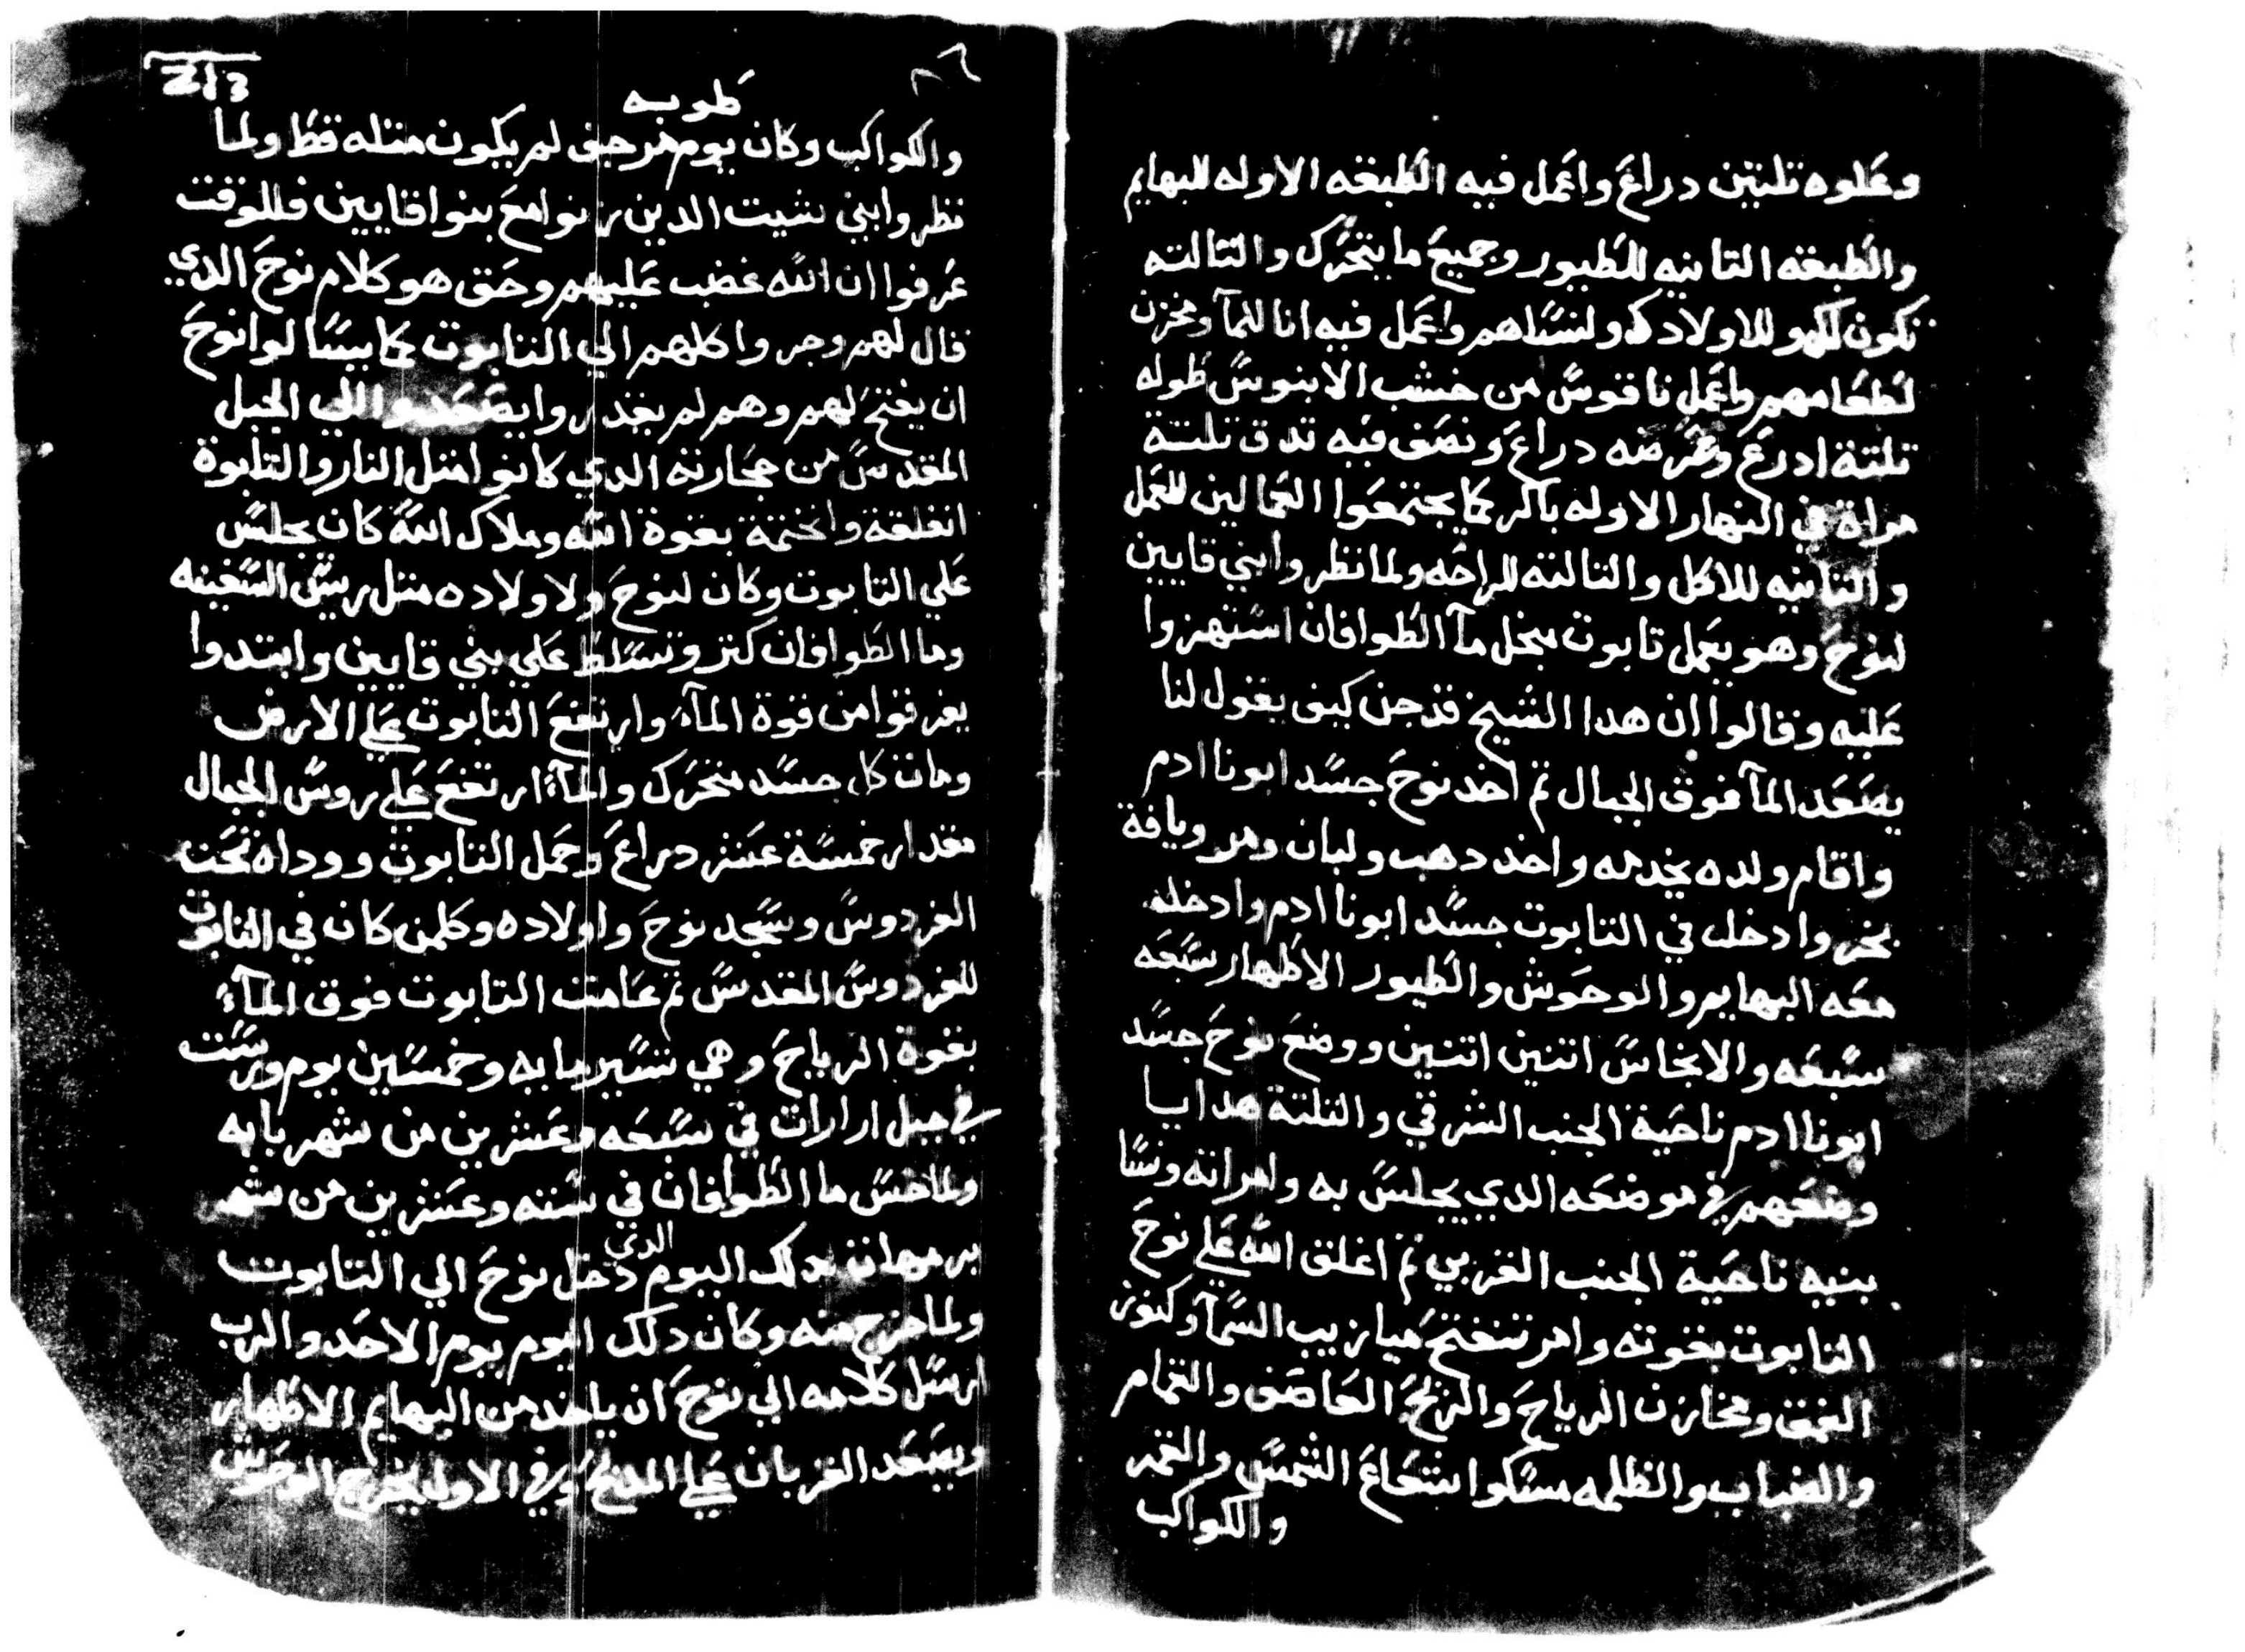 وعلوه تلتين دراع واعمل فيه الطبقه الاوله للبهايم
والطبقه التانيه للطيور وجميع ما يتحرك والتالته
تكون لك وللاولادك ولنساهم واعمل فيه انا للمآ ومخزن
لطعامهم واعمل ناقوس من خشب الابنوس طوله
تلتة ادرع وعرضه دراع ونصف فيه تدق تلتة
مراة في النهار الاوله باكر كما يجتمعوا العمالين للعمل
والتانيه للاكل والتالته للراحه ولما نظروا ابني قايين
لنوح وهو يعمل تابوت بخل مآ الطوافان استهزوا
عليه وقالوا ان هدا الشيخ قد جن كيف يقول لنا
يصعد المآ فوق الجبال تم اخد نوح جسد ابونا ادم
واقام ولده يخدمه واخد دهب ولبان ومر وياقة
بخر وادخل في التابوت جسد ابونا ادم وادخله
معه البهايم والوحوش والطيور الاطهار سبعه
سبعه والانجاس اتنين اتنين ووضع نوح جسد
ابونا ادم ناحية الجنب الشرقي والتلتة هدايا
وضعهم في موضعه الدي يجلس به وامراته ونسا
بنيه ناحية الجنب الغربي تم اغلق الله علي نوح
التابوت بقوته وامر تنفتح ميازيب السمآ وكنوز
العمق ومخازن الرياح والريح العاصف والغمام
والضباب والظلمه مسكوا شعاع الشمس والقمر
والكواكب
213
طوبه
والكواكب وكان يوم مرجف لم يكون متله قط ولما
نظروا ابني شيت الدين زنوا مع بنوا قايين فللوقت
عرفوا ان الله غضب عليهم وحق هو كلام نوح الدي
قال لهم وجروا كلهم الي التابوت كما يسالوا نوح
ان يفتح لهم وهم لم يقدروا يصعدوا الي الجبل
المقدس من حجارته الدي كانوا متل النار والتابوة
انغلقة وانختمة بقوة الله وملاك الله كان يجلس
علي التابوت وكان لنوح ولاولاده متل ريس السفينه
وما الطوافان كتر وتسلط علي بني قايين وابتدوا
يغرقوا من قوة المآء وارتفع التابوت علي الارض
ومات كل جسد متحرك والمآء ارتفع علي روس الجبال
مقدار خمسة عشر دراع وحمل التابوت ووداه تحت
الفردوس وسجد نوح واولاده وكلمن كان في التابوت
للفردوس المقدس تم عامت التابوت فوق المآء
بقوة الرياح وهي تسير مايه وخمسين يوم ورست
في جبل ارارات في سبعه وعشرين من شهر بابه
ولما خس ما الطوافان في سته وعشرين من شهر
برمهات دلك اليوم الدي دخل نوح الي التابوت
ولما خرج منه وكان دلك اليوم يوم الاحد والرب
ارسل كلامه الي نوح ان ياخد من البهايم الاطهار
ويصعد القربان علي المدبح وفي الاول يخرج الوحوش